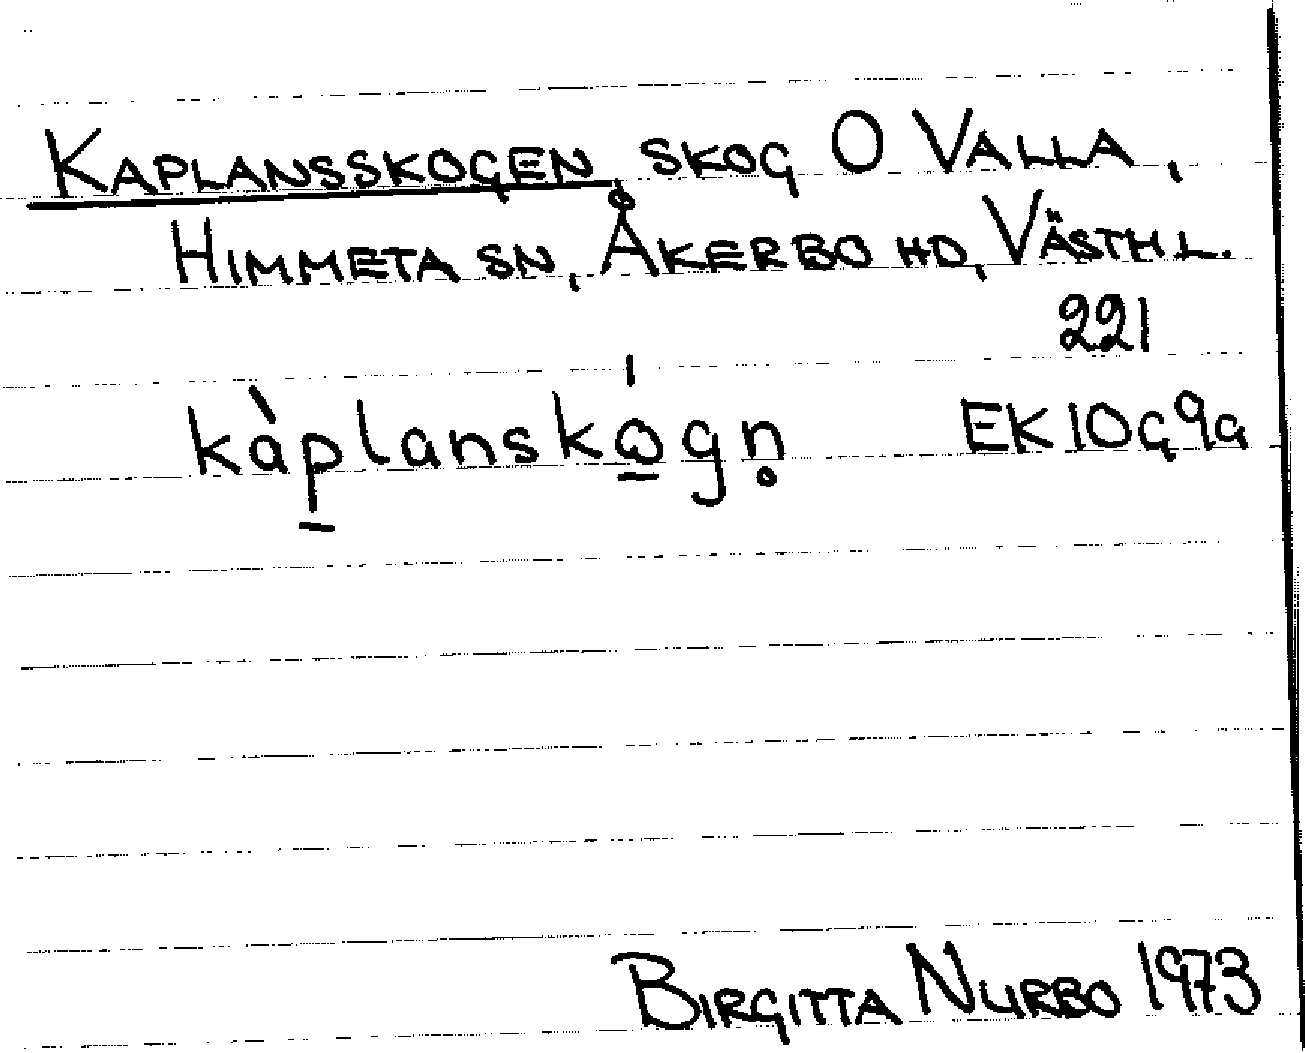 KAPLANSSKOGEN SKOG O VALLA,
HIMMETA SN, ÅKERBO HD, VÄSTM L.
221
kàp̲lansko̲̍gn̥ EK 10G9a
BIRGITTA NURBO 1973